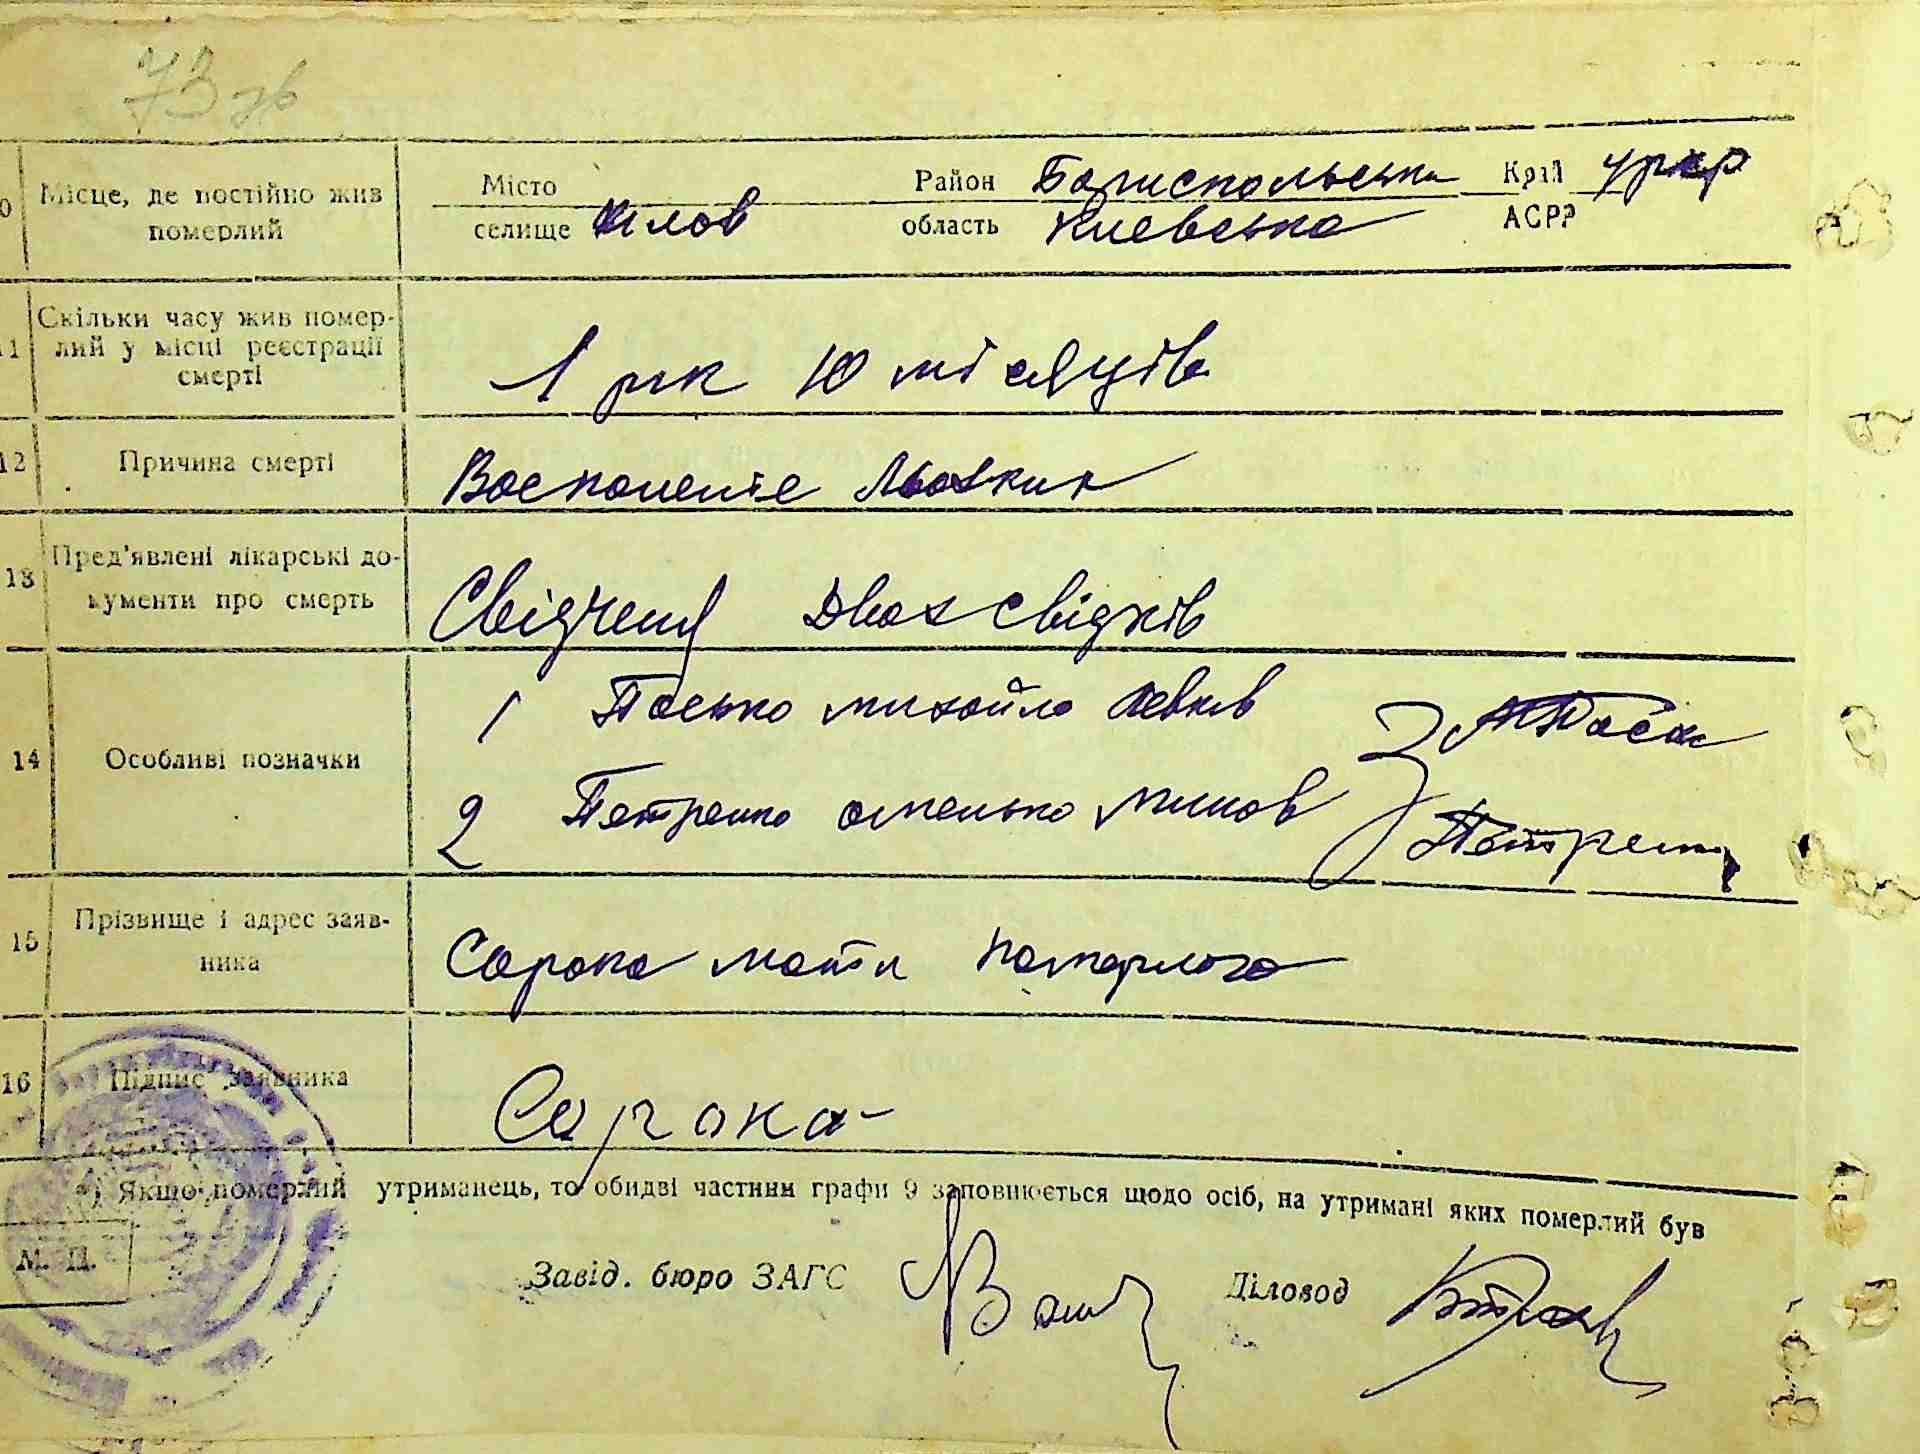 73 зв
Місце, де постійно жив
померлий
Місто
селище Кілов
Район Бориспольськи
область Києвська
Край УРСР
АСРР
11 Скільки часу жив помер-
лий у місці реєстрації
смерті
1 рік 10 місяців
12 Причина смерті
Воспоменіе
13 Пред'явлені лікарські до-
кументи про смерть
Свідченя Двох свідків
14 Особливі позначки
1 Пасько михайло
2 Петренко оменько
Петренко
15 Прізвище і адрес заяв-
ника
Сорока мати померлого
16 Підпис заявника
Сорока
*) Якщо померлий утриманець, то обидві частини графи 9 заповнюється щодо осіб, на утримані яких померлий був
М. П.
Завід. бюро ЗАГС
Діловод